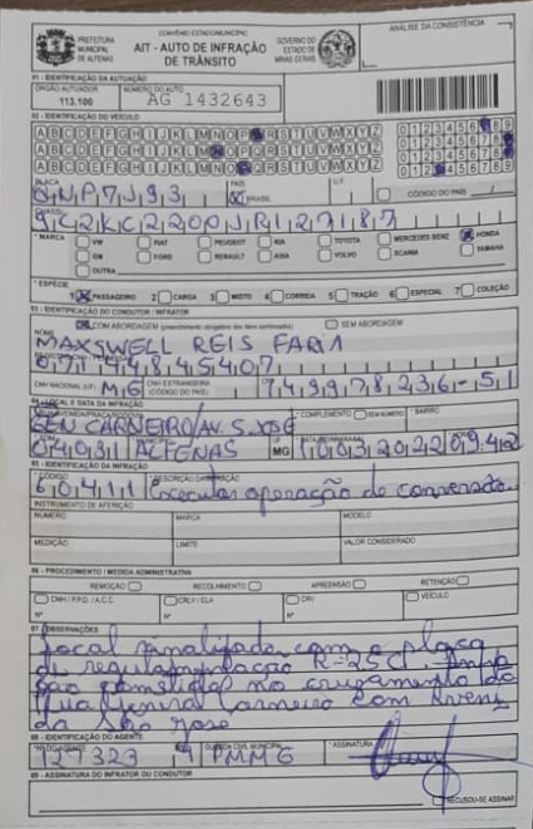 PREFEITURA MUNICIPAL DE ALFENAS
CONVÊNIO ESTADO/MUNICÍPIO
AIT - AUTO DE INFRAÇÃO DE TRÂNSITO
GOVERNO DO ESTADO DE MINAS GERAIS
ANÁLISE DA CONSISTÊNCIA
01 - IDENTIFICAÇÃO DA AUTUAÇÃO
ÓRGÃO AUTUADOR NÚMERO DO AUTO
113.100 AG 1432643
02 - IDENTIFICAÇÃO DO VEÍCULO
A B C D E F G H I J K L M N O P Q R S T U V W X Y Z 0 1 2 3 4 5 6 7 8 9
A B C D E F G H I J K L M N O P Q R S T U V W X Y Z 0 1 2 3 4 5 6 7 8 9
A B C D E F G H I J K L M N O P Q R S T U V W X Y Z 0 1 2 3 4 5 6 7 8 9
0 1 2 3 4 5 6 7 8 9
PLACA PAÍS U.F.
QNP7J93 BRASIL CÓDIGO DO PAÍS
CHASSI
9C2KC2200JR127187
* MARCA VW FIAT PEUGEOT KIA TOYOTA MERCEDES BENZ HONDA
GM FORD RENAULT ASIA VOLVO SCANIA YAMAHA
OUTRA
* ESPÉCIE
1 PASSAGEIRO 2 CARGA 3 MISTO 4 CORRIDA 5 TRAÇÃO 6 ESPECIAL 7 COLEÇÃO
03 - IDENTIFICAÇÃO DO CONDUTOR / INFRATOR
COM ABORDAGEM (preenchimento obrigatório dos itens sombreados) SEM ABORDAGEM
NOME
MAXSWELL REIS FARIA
07144845407
CNH NACIONAL (UF) MG CNH ESTRANGEIRA 749978236-51
04 - LOCAL E DATA DA INFRAÇÃO
* COMPLEMENTO SEM NÚMERO * BAIRRO
GEN CARNEIRO/AV. S. JOSÉ
04031 ALFENAS MG 10032022 09:42
05 - IDENTIFICAÇÃO DA INFRAÇÃO
* CÓDIGO * DESCRIÇÃO DA INFRAÇÃO
60411 Executar operação de conversão
INSTRUMENTO DE AFERIÇÃO
NÚMERO MARCA MODELO
MEDIÇÃO LIMITE VALOR CONSIDERADO
06 - PROCEDIMENTO / MEDIDA ADMINISTRATIVA
REMOÇÃO RECOLHIMENTO APREENSÃO RETENÇÃO
CNH / P.P.D. / A.C.C CRLV / CLA CRV VEÍCULO
Nº Nº Nº
07 - OBSERVAÇÕES
Local sinalizado com a placa
de regulamentação R-25C1.
no cruzamento da
Rua General Carneiro com Aveni
da São José
08 - IDENTIFICAÇÃO DO AGENTE
Nº DO AGENTE GUARDA CIVIL MUNICIPAL * ASSINATURA
127323 4 PMMG
09 - ASSINATURA DO INFRATOR OU CONDUTOR
RECUSOU-SE ASSINAR